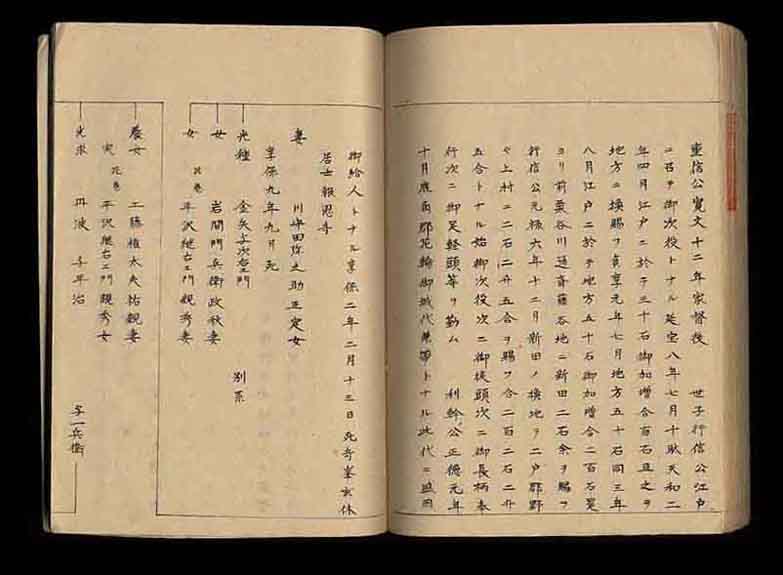 重信公寛文十二年家督後　世子行信公江戸
ニ召ヲ御次役トナル延宝八年七月十駄天和二
年四月江戸ニ於テ三十石御加増合百石且之ヲ
地方ニ換賜フ貞享元年七月地方五十石同三年
八月江戸ニ於テ地方五十石御加増合二百石是
ヨリ前栗谷川通斎藤谷地ニ新田二石余ヲ賜フ
行信公元禄六年十二月新田ノ換地ヲ二戸郡野
々上村ニ二石二升五合ヲ賜フ合二百二石二升
五合トナル始御次役次ニ御徒頭次ニ御長柄奉
行次ニ御足軽頭等ヲ勤ム　利幹公正徳元年
十月鹿角郡花輪御城代兼帯トナル此代ニ盛岡
御給人トナル享保二年二月十三日死奇峯玄休
居士報恩寺
妻　川嶋田弥之助正定女
享保九年九月死
光種　金矢与次右エ門　別系
女　岩間門兵衛政秋妻
女　平沢継右エ門親秀妻
養女　工藤権太夫祐親妻
実　平沢継右エ門親秀女
光求　丹波　与平治
与一兵衛